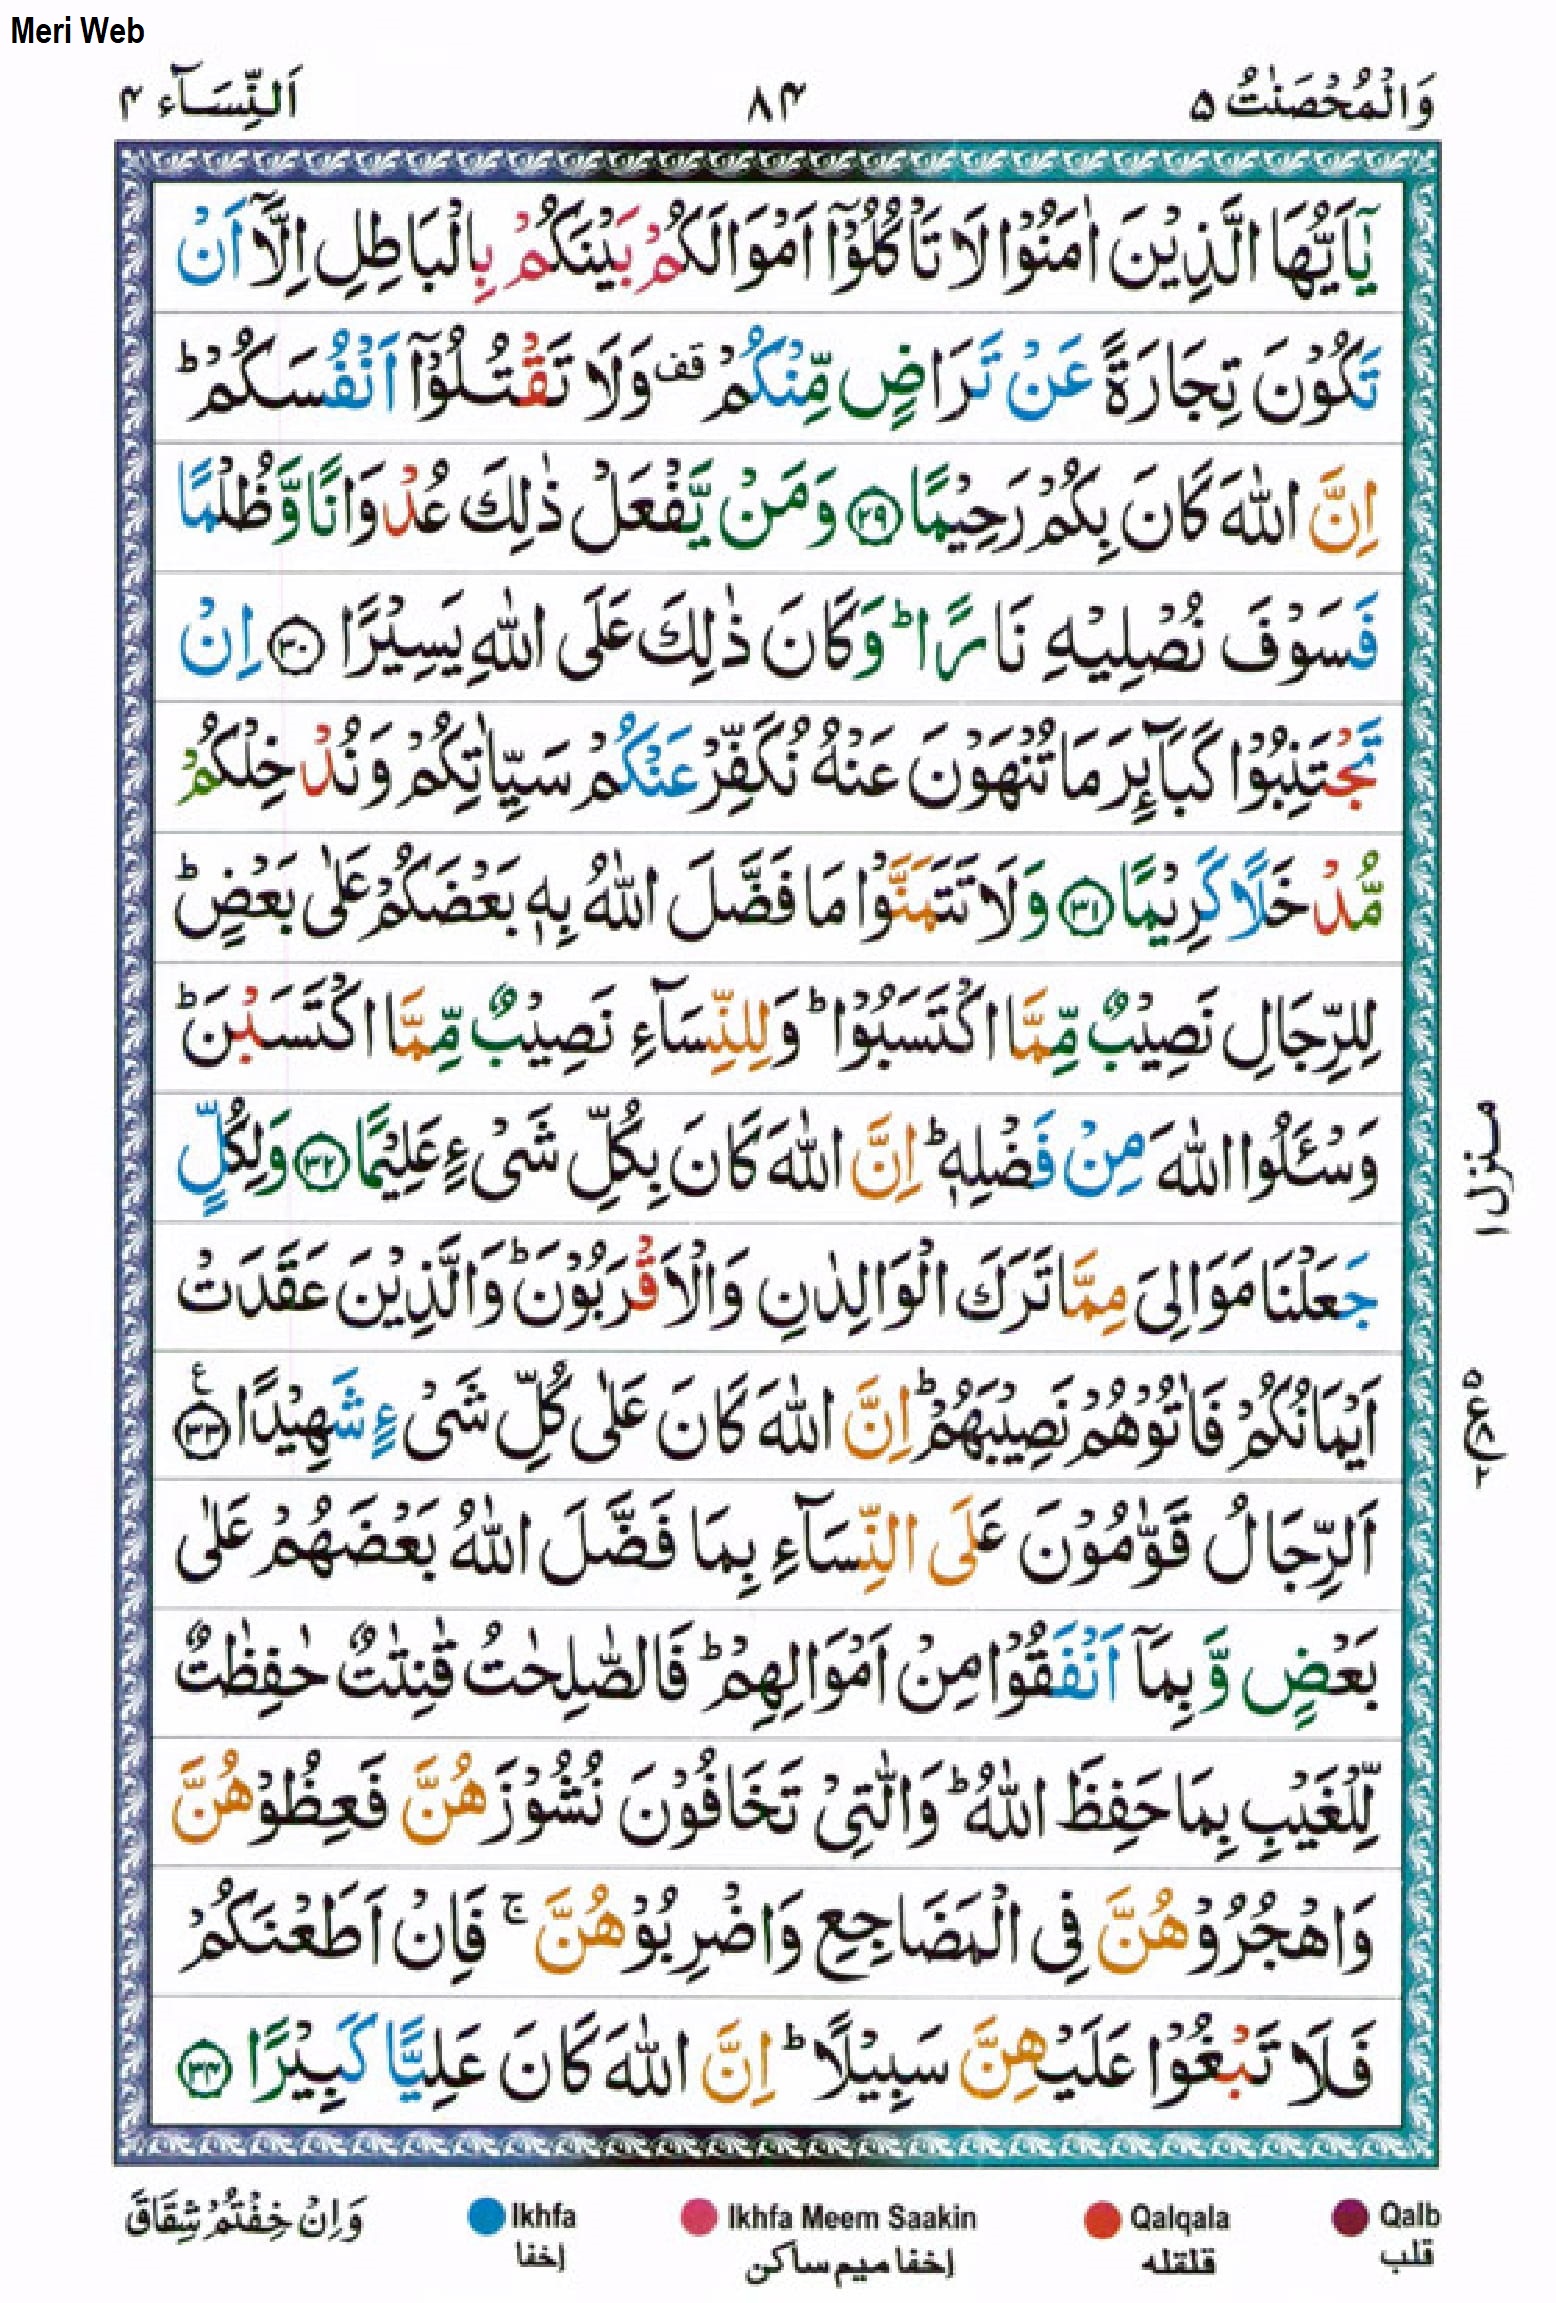 Meri Web
وَالْمُحْصَنٰتُ ۵
۸۴
اَلنِّسَآء ۴
يٰۤاَيُّهَا الَّذِيْنَ اٰمَنُوْا لَا تَاْكُلُوْۤا اَمْوَالَكُمْ بَيْنَكُمْ بِالْبَاطِلِ اِلَّاۤ اَنْ
تَكُوْنَ تِجَارَةً عَنْ تَرَاضٍ مِّنْكُمْ قف وَلَا تَقْتُلُوْۤا اَنْفُسَكُمْ ؕ
اِنَّ اللّٰهَ كَانَ بِكُمْ رَحِيْمًا ﴿۲۹﴾ وَمَنْ يَّفْعَلْ ذٰلِكَ عُدْوَانًا وَّظُلْمًا
فَسَوْفَ نُصْلِيْهِ نَارًا ؕ وَكَانَ ذٰلِكَ عَلَى اللّٰهِ يَسِيْرًا ﴿۳۰﴾ اِنْ
تَجْتَنِبُوْا كَبَآئِرَ مَا تُنْهَوْنَ عَنْهُ نُكَفِّرْ عَنْكُمْ سَيِّاٰتِكُمْ وَنُدْخِلْكُمْ
مُّدْخَلًا كَرِيْمًا ﴿۳۱﴾ وَلَا تَتَمَنَّوْا مَا فَضَّلَ اللّٰهُ بِهٖ بَعْضَكُمْ عَلٰى بَعْضٍ ؕ
لِلرِّجَالِ نَصِيْبٌ مِّمَّا اكْتَسَبُوْا ؕ وَلِلنِّسَآءِ نَصِيْبٌ مِّمَّا اكْتَسَبْنَ ؕ
وَسْئَلُوا اللّٰهَ مِنْ فَضْلِهٖ ؕ اِنَّ اللّٰهَ كَانَ بِكُلِّ شَىْءٍ عَلِيْمًا ﴿۳۲﴾ وَلِكُلٍّ
جَعَلْنَا مَوَالِىَ مِمَّا تَرَكَ الْوَالِدٰنِ وَالْاَقْرَبُوْنَ ؕ وَالَّذِيْنَ عَقَدَتْ
اَيْمَانُكُمْ فَاٰتُوْهُمْ نَصِيْبَهُمْ ؕ اِنَّ اللّٰهَ كَانَ عَلٰى كُلِّ شَىْءٍ شَهِيْدًا ﴿۳۳﴾ ع
اَلرِّجَالُ قَوّٰمُوْنَ عَلَى النِّسَآءِ بِمَا فَضَّلَ اللّٰهُ بَعْضَهُمْ عَلٰى
بَعْضٍ وَّبِمَاۤ اَنْفَقُوْا مِنْ اَمْوَالِهِمْ ؕ فَالصّٰلِحٰتُ قٰنِتٰتٌ حٰفِظٰتٌ
لِّلْغَيْبِ بِمَا حَفِظَ اللّٰهُ ؕ وَالّٰتِىْ تَخَافُوْنَ نُشُوْزَهُنَّ فَعِظُوْهُنَّ
وَاهْجُرُوْهُنَّ فِى الْمَضَاجِعِ وَاضْرِبُوْهُنَّ ۚ فَاِنْ اَطَعْنَكُمْ
فَلَا تَبْغُوْا عَلَيْهِنَّ سَبِيْلًا ؕ اِنَّ اللّٰهَ كَانَ عَلِيًّا كَبِيْرًا ﴿۳۴﴾
منزل ۱
۵ ع ۲
وَاِنْ خِفْتُمْ شِقَاقَ
Ikhfa
اخفا
Ikhfa Meem Saakin
اخفا ميم ساكن
Qalqala
قلقله
Qalb
قلب